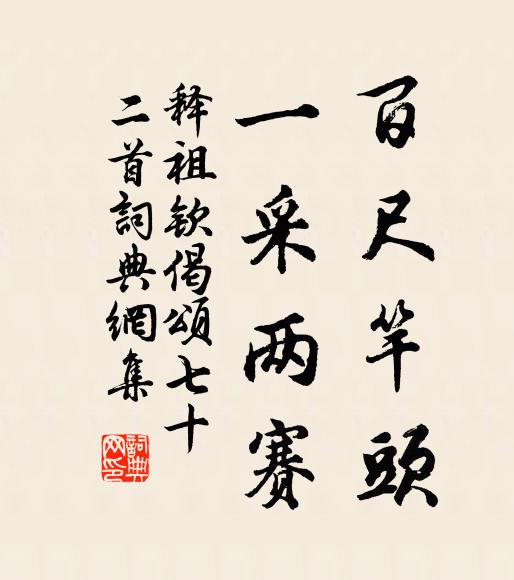 百尺竿頭
一采两賽
释祖钦偈頌七十
二首詞典網集
詞典
网印